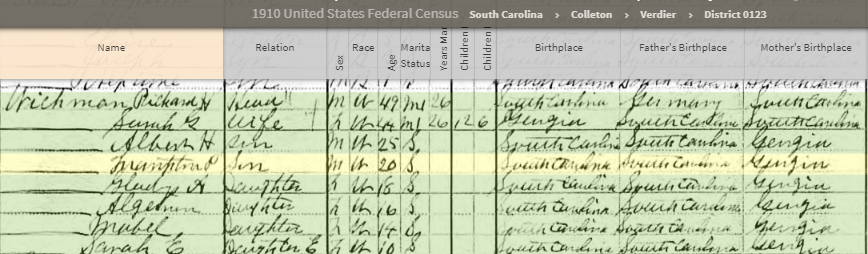 1910 United States Federal Census South Carolina › Colleton › Verdier › District 0123
Name Relation Sex Race Age Marita Status Years Mar Children Children Birthplace Father's Birthplace Mother's Birthplace
Wichman Richard H Head M W 49 M1 26 South Carolina Germany South Carolina
Sarah G Wife F W 44 M1 26 12 6 Georgia South Carolina South Carolina
Albert H Son M W 25 S South Carolina South Carolina Georgia
Hampton P Son M W 20 S South Carolina South Carolina Georgia
Gladys A Daughter F W 18 S South Carolina South Carolina Georgia
Algernon Daughter F W 16 S South Carolina South Carolina Georgia
Mabel Daughter F W 14 S South Carolina South Carolina Georgia
Sarah E Daughter F W 10 S South Carolina South Carolina Georgia